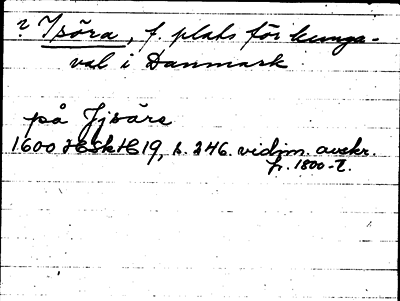 ? Isöra, f. plats för kunga-
val i Danmark
på Jisöre
1600 HSkH 19, s. 246. vidim. avskr.
fr. 1800-t.